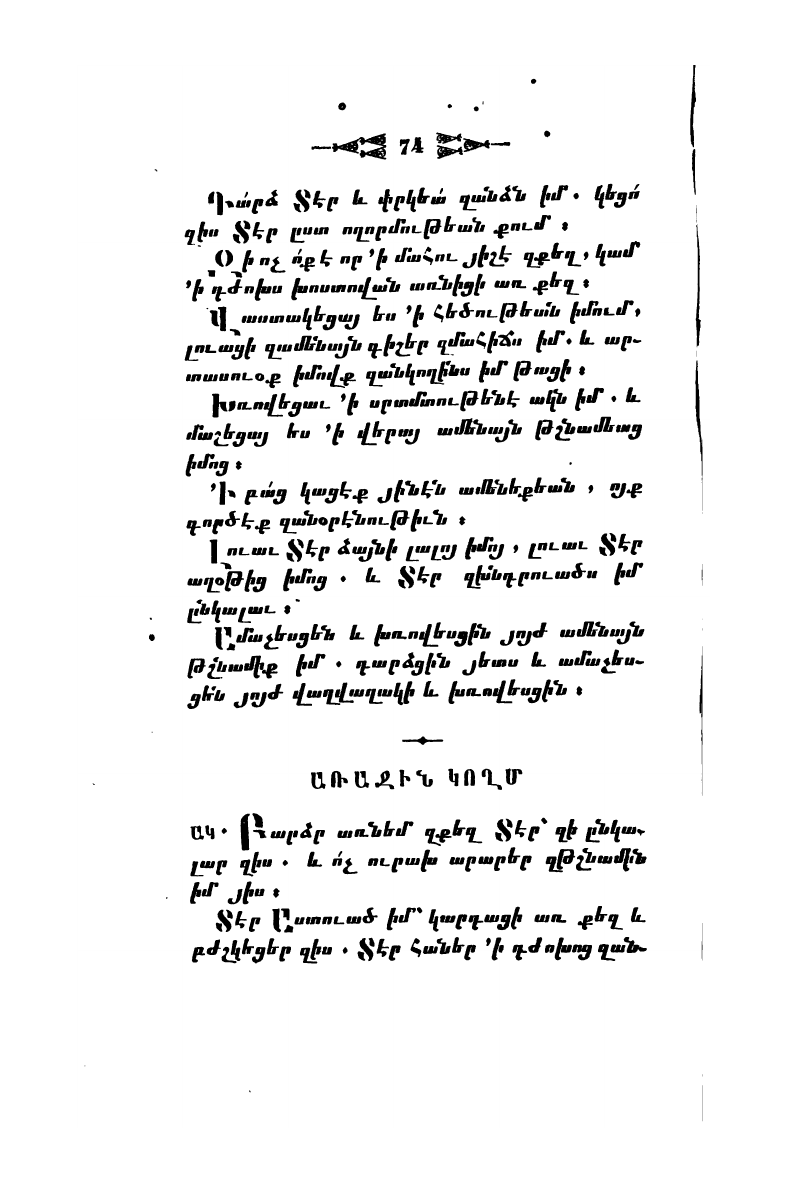 74
Դա՛րձ Տէր և փրկեա՛ զանձն իմ․ կեցո՛
զիս Տէր ըստ ողորմութեան քում ։
Զի ոչ ո՛ք է որ ՚ի մահու յիշէ զքեզ, կամ
՚ի դժոխս խոստովան առնիցի առ քեզ ։
Վաստակեցայ ես ՚ի հեծութեան իմում,
լուացի զամենայն գիշեր զմահիճս իմ․ և ար-
տասուօք իմովք զանկողինս իմ թացի ։
Խռովեցաւ ՚ի սրտմտութենէ ակն իմ․ և
մաշեցայ ես ՚ի վերայ ամենայն թշնամեաց
իմոց ։
՚Ի բա՛ց կացէք յինէն ամենեքեան, ոյք
գործէք զանօրէնութիւն ։
Լուաւ Տէր ձայնի լալոյ իմոյ, լուաւ Տէր
աղօթից իմոց․ և Տէր զխնդրուածս իմ
ընկալաւ ։
Ամաչեսցեն և խռովեսցին յոյժ ամենայն
թշնամիք իմ․ դարձցին յետս և ամաչես-
ցեն յոյժ վաղվաղակի և խռովեսցին ։
ԱՌԱՋԻՆ ԿՈՂՄ
ԱԿ․ Բարձր առնեմ զքեզ Տէր՝ զի ընկա-
լար զիս․ և ո՛չ ուրախ արարեր զթշնամին
իմ յիս ։
Տէր Աստուած իմ՝ կարդացի առ քեզ և
բժշկեցեր զիս․ Տէր հաներ ՚ի դժոխոց զան-